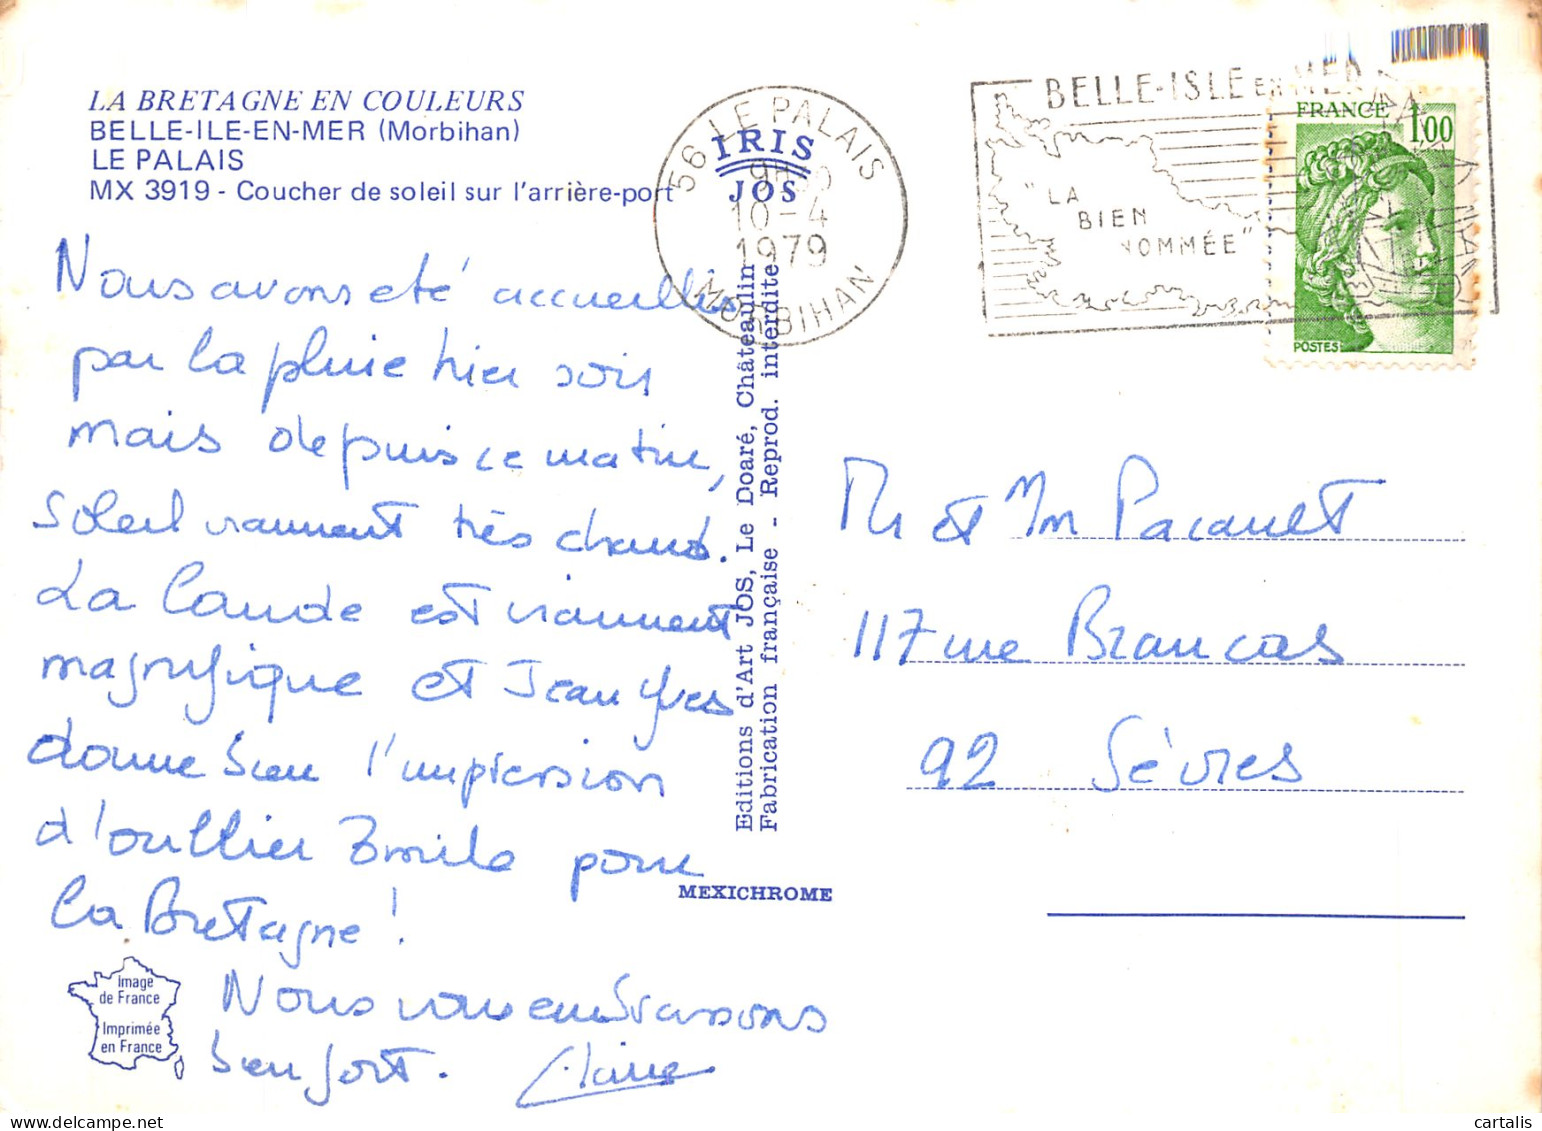 LA BRETAGNE EN COULEURS
BELLE-ILE-EN-MER (Morbihan)
LE PALAIS
MX 3919 - Coucher de soleil sur l'arrière-port
Nous avons été accueillis
par la pluie hier soir
mais depuis ce matin,
soleil vraiment très chaud.
La Lande est vraiment
magnifique et Jean Yves
donne bien l'impression
d'oublier Emile pour
la Bretagne !
Nous vous embrassons
bien fort.
Image
de France
Imprimée
en France
56 LE PALAIS
IRIS
JOS
10-4
1979
MORBIHAN
Editions d'Art JOS, Le Doaré, Châteaulin
Fabrication française - Reprod. interdite
MEXICHROME
BELLE-ISLE EN MER
"LA
BIEN
NOMMÉE"
FRANCE 1,00
POSTES
Mr et Mm Pacault
117 rue Brancas
92 Sèvres
cartalis